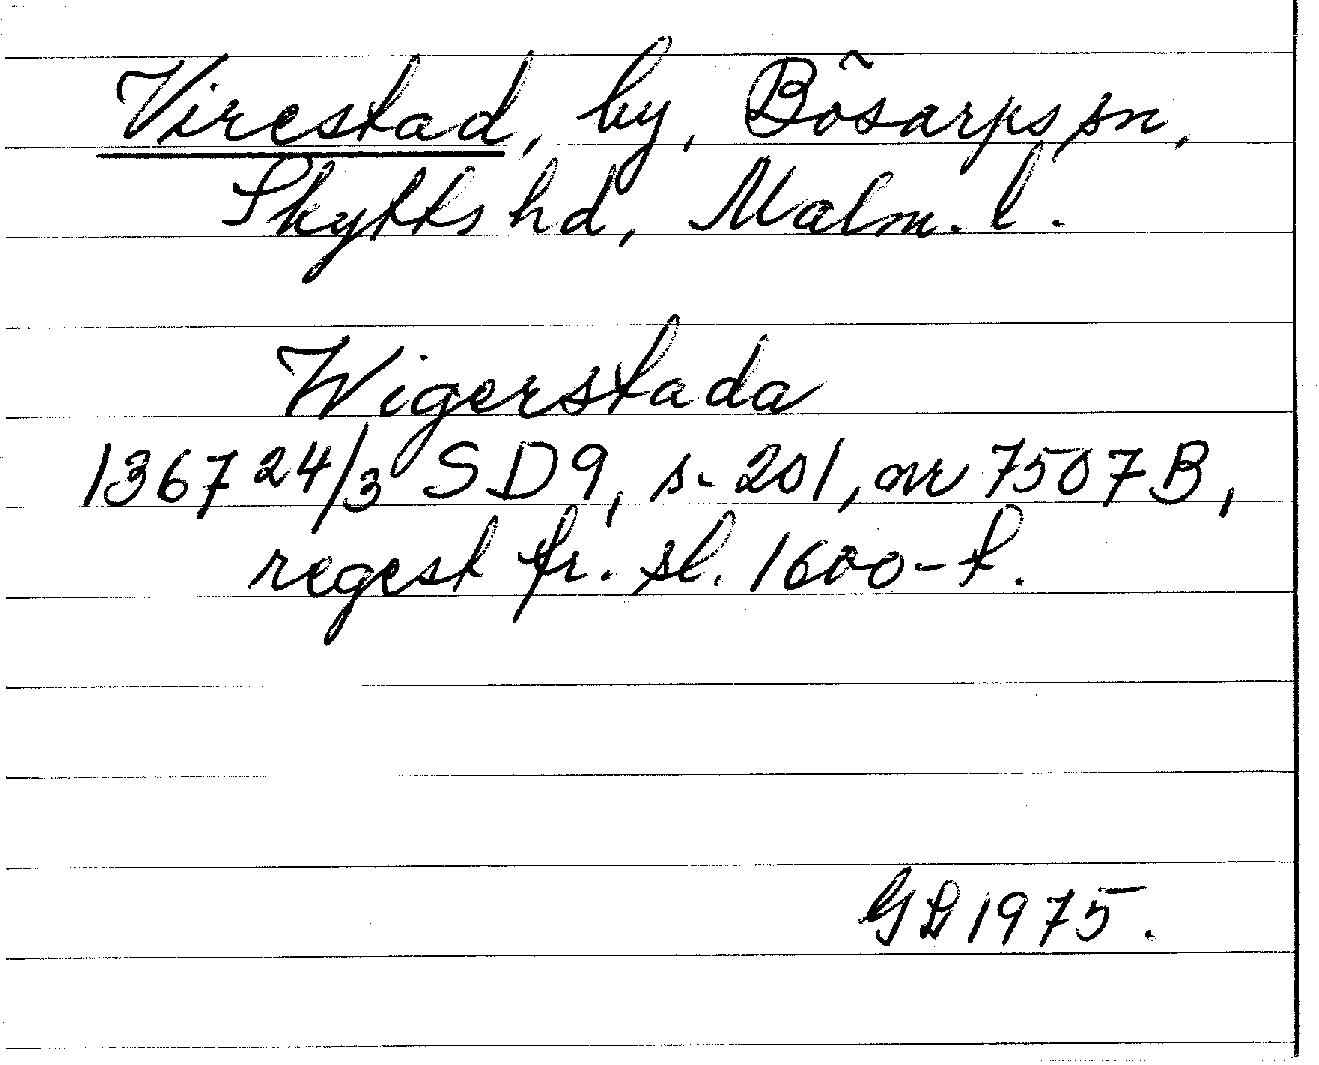 Virestad, by, Bösarps sn,
Skytts hd, Malm. l.
Wigerstada
1367 24/3 SD9, s. 201, nr 7507 B,
regest fr. sl. 1600-t.
GB 1975.